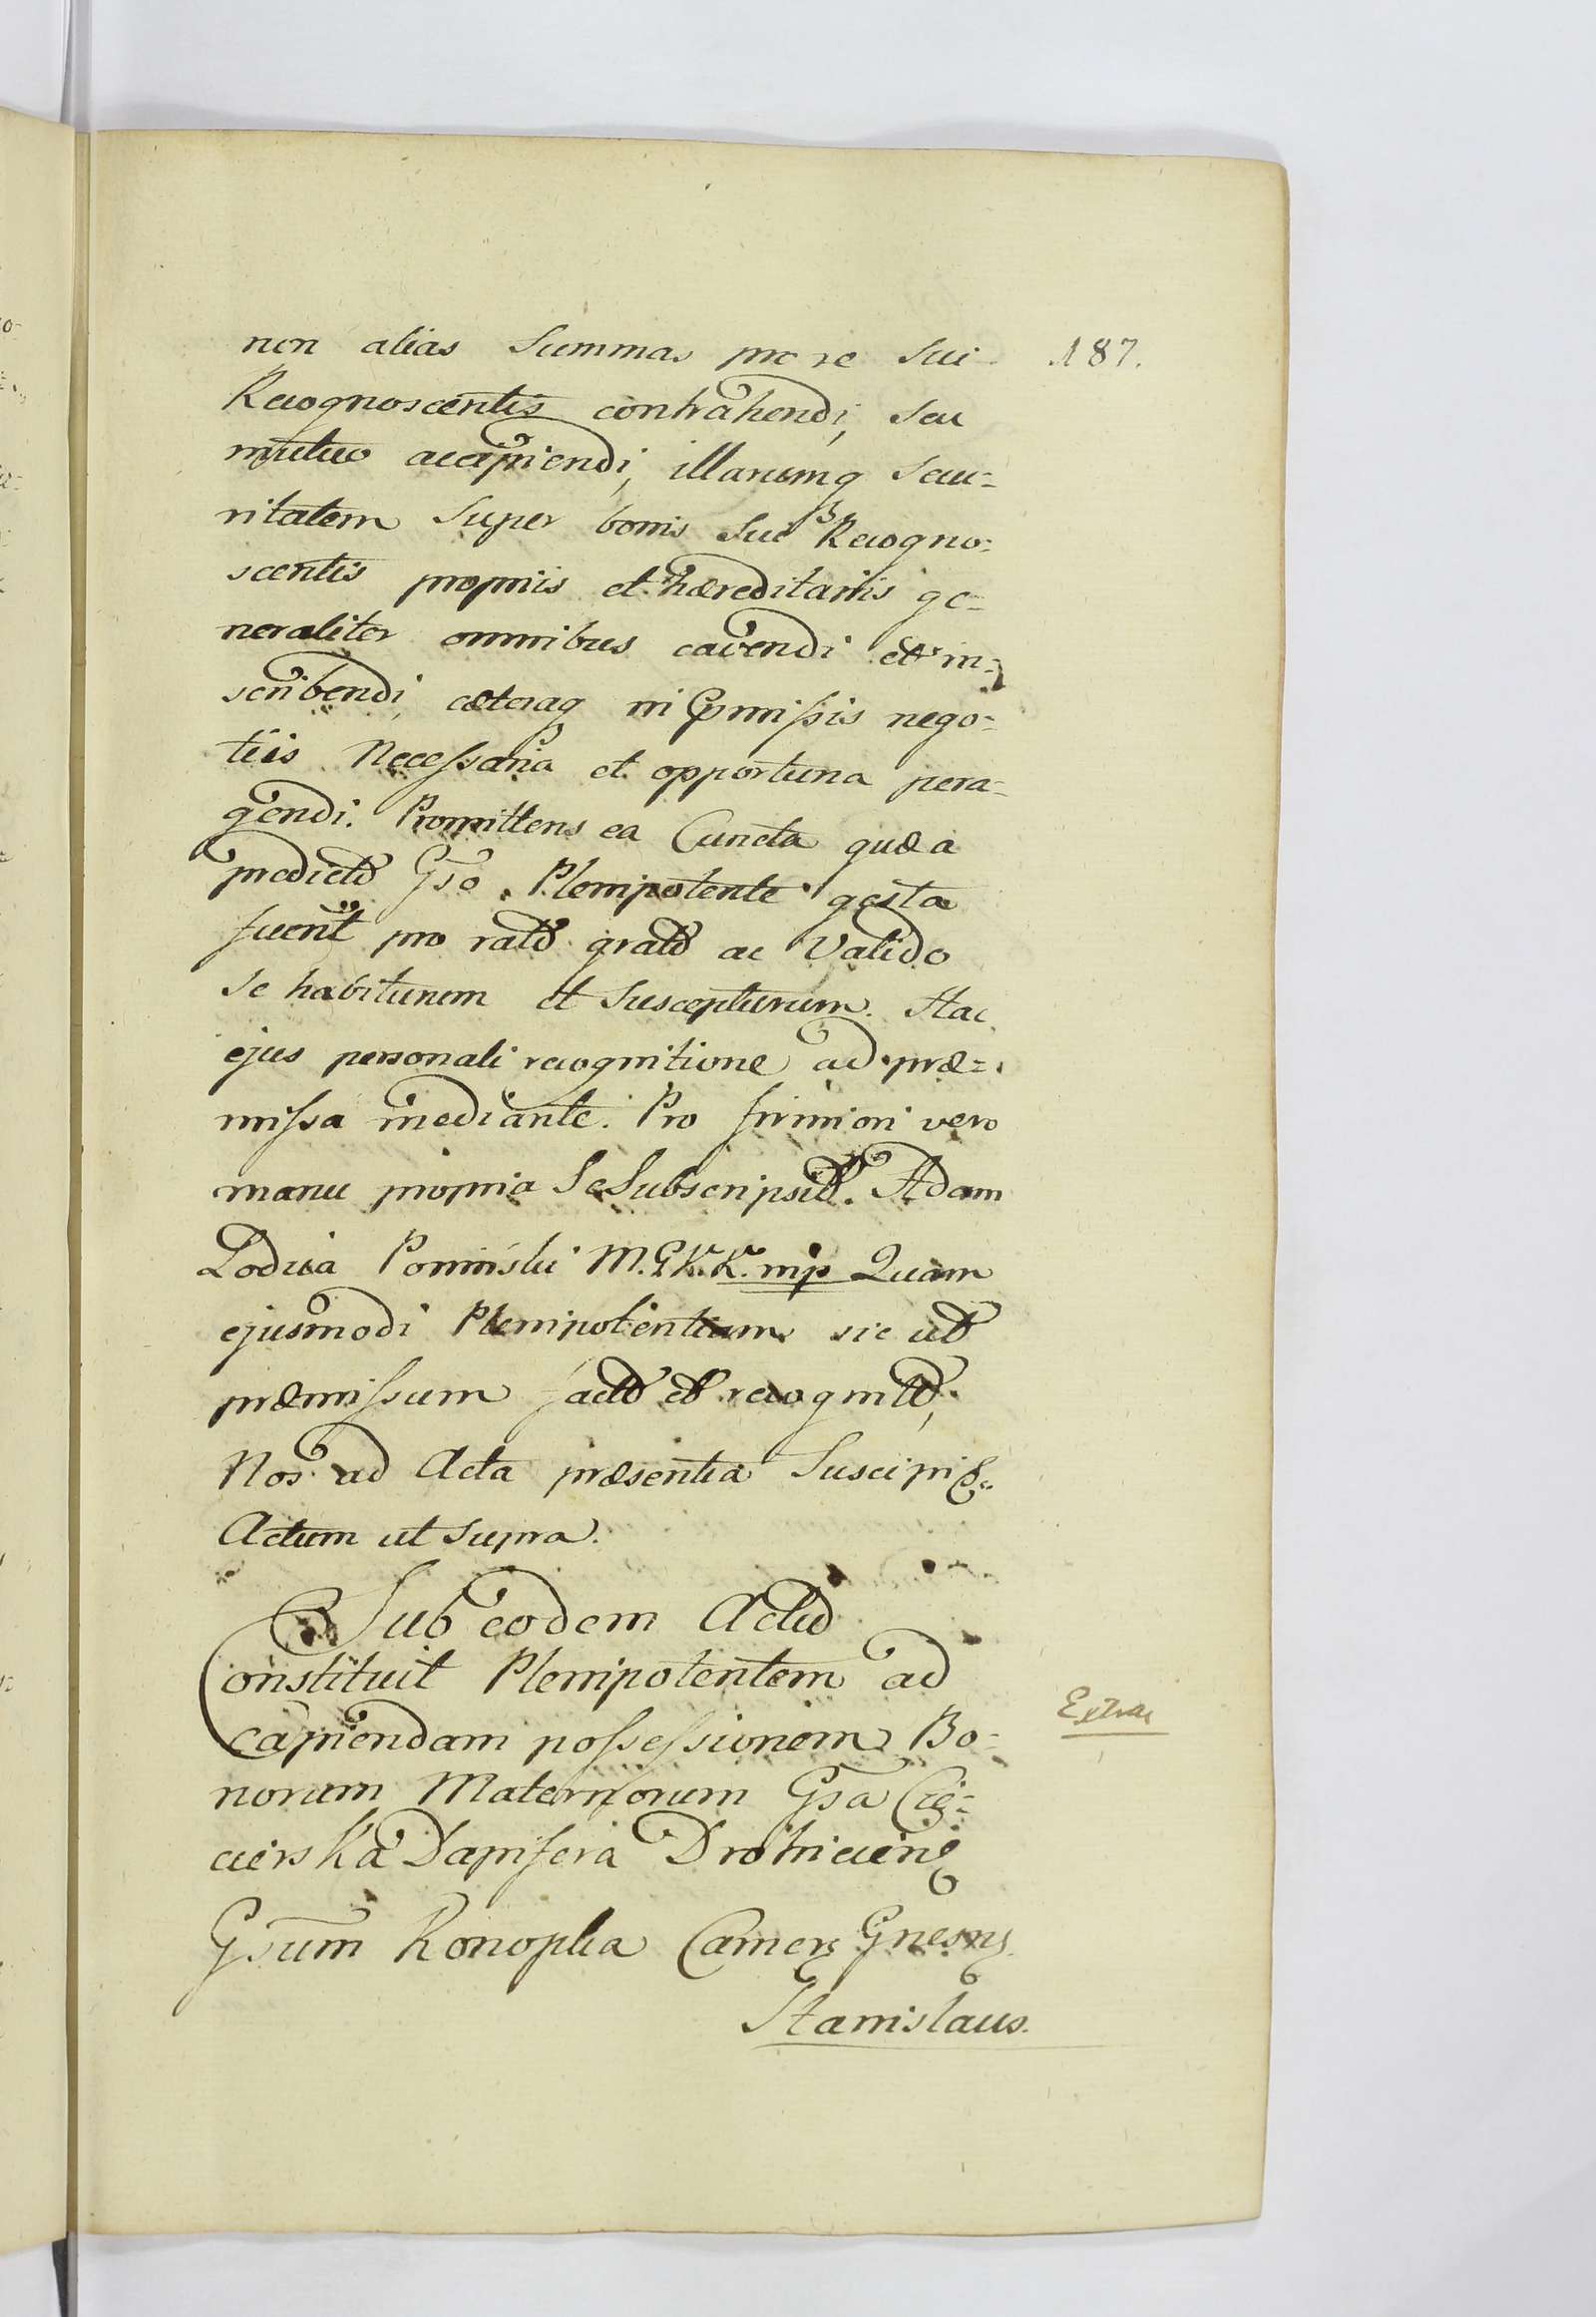 non alias Summas pro re Sui 187.
Recognoscentis contrahendi, Seu
mutuo accipiendi, illarumq Secu=
ritatem Super bonis Sui Recogno=
scentis propriis et hæreditariis ge=
neraliter omnibus cavendi et in=
scribendi, cæteraq in Pmissis nego=
tiis Necessaria et opportuna pera=
gendi. Promittens ea Cuncta quæ a
predicto Gso Plenipotente gesta
fuerit pro rato grato ac Valido
Se habiturum et Suscepturum. Hac
ejus personali recognitione ad præ=
missa mediante. Pro firmiori vero
manu propria Se Subscripsit. Adam
Lodzia Poniński M.G.K.K. mp Quam
ejusmodi Plenipotentiam sic ut
præmissum facto et recognito,
Nos ad Acta præsentia Suscipi
Actum ut Supra.
Sub eodem Actu
Constituit Plenipotentem ad
capiendam possessionem Bo= Extrac
norum Maternorum Gsa Cie=
cierska Dapifera Drohicien
Gsum Konopka Camer Gnesn
Stanislaus.